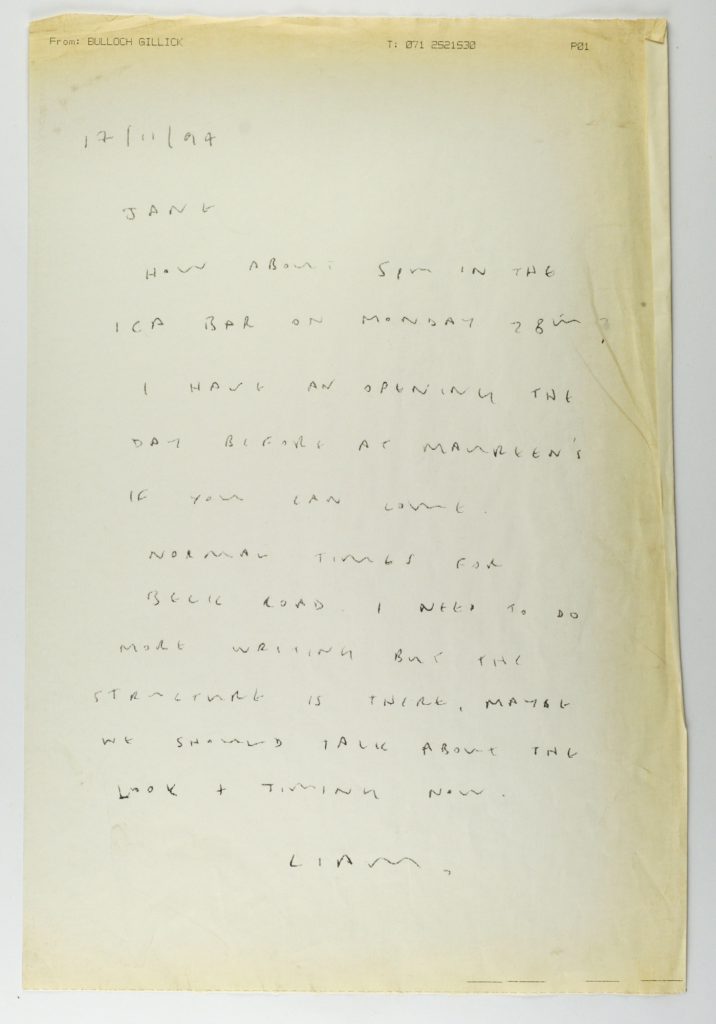 From: BULLOCH GILLICK T: 071 2521530 P01
17/11/94
JANE
HOW ABOUT 5pm IN THE
ICA BAR ON MONDAY 28TH?
I HAVE AN OPENING THE
DAY BEFORE AT MAUREEN'S
IF YOU CAN COME.
NORMAL TIMES FOR
BECK ROAD. I NEED TO DO
MORE WRITING BUT THE
STRUCTURE IS THERE, MAYBE
WE SHOULD TALK ABOUT THE
LOOK + TIMING NOW.
LIAM,